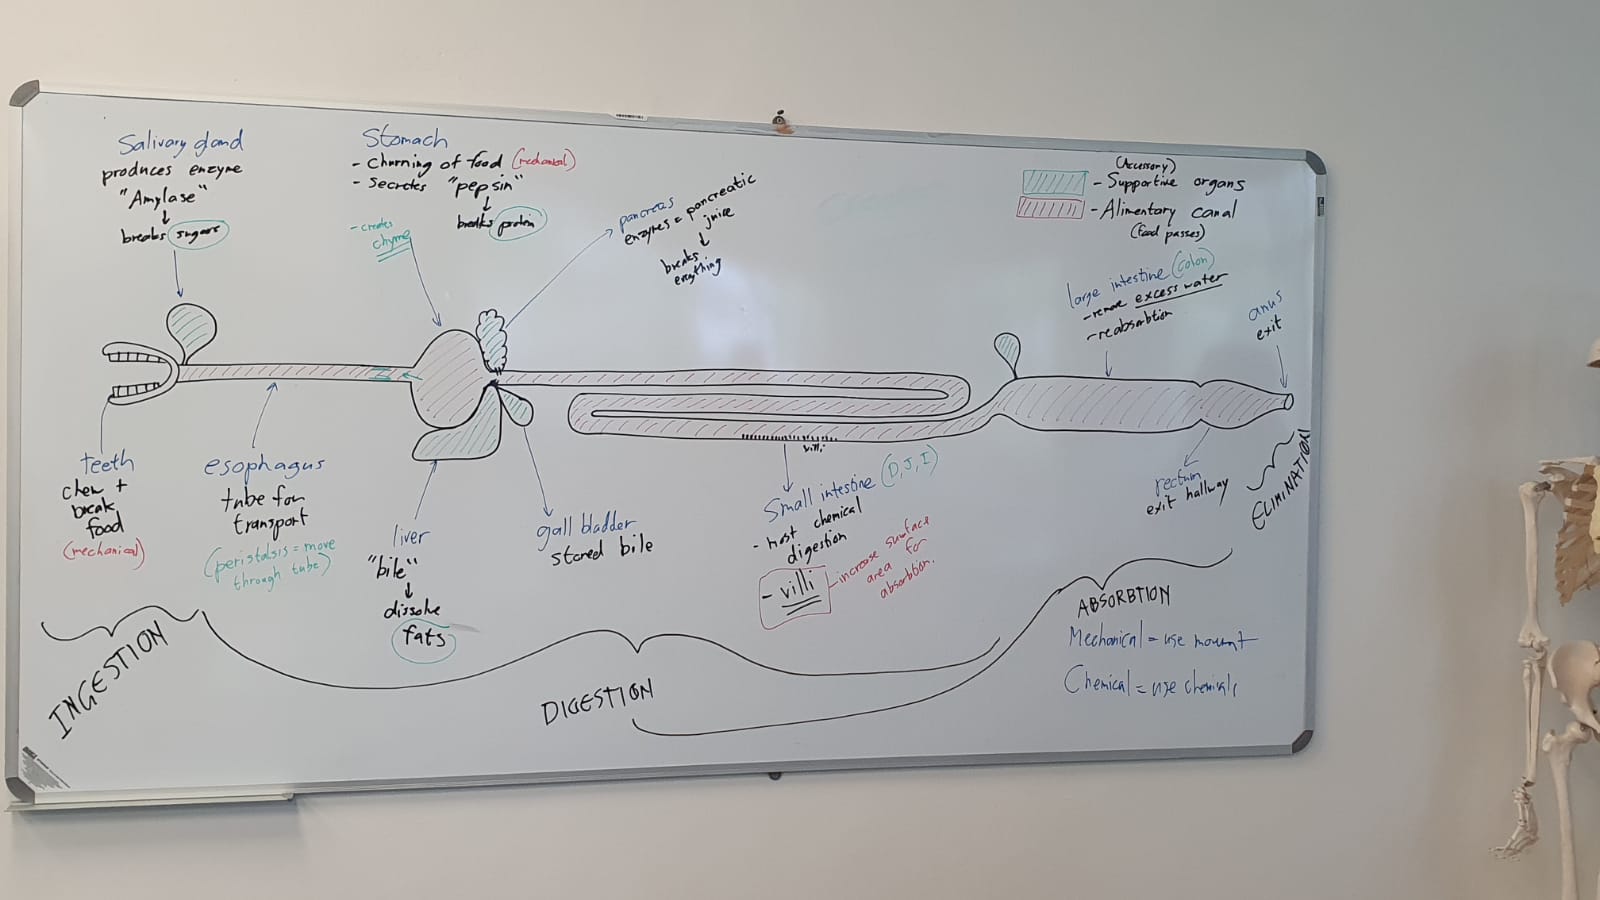 Salivary gland
produces enzyme
"Amylase"
↓
breaks sugars
Stomach
- Churning of food (mechanical)
- Secretes "pepsin"
↓
breaks protein
- creates
chyme
pancreas
enzymes = pancreatic
juice
↓
breaks
everything
(Accessory)
- Supportive organs
- Alimentary canal
(food passes)
large intestine (colon)
- remove excess water
- reabsorbtion
anus
exit
teeth
chew +
break
food
(mechanical)
esophagus
tube for
transport
(peristalsis = move
through tube)
liver
"bile"
↓
dissolve
fats
gall bladder
stored bile
villi
Small intestine (D, J, I)
- most chemical
digestion
- villi
increase surface
area for
absorbtion.
rectum
exit hallway
INGESTION
DIGESTION
ABSORBTION
ELIMINATION
Mechanical = use
Chemical = use chemicals